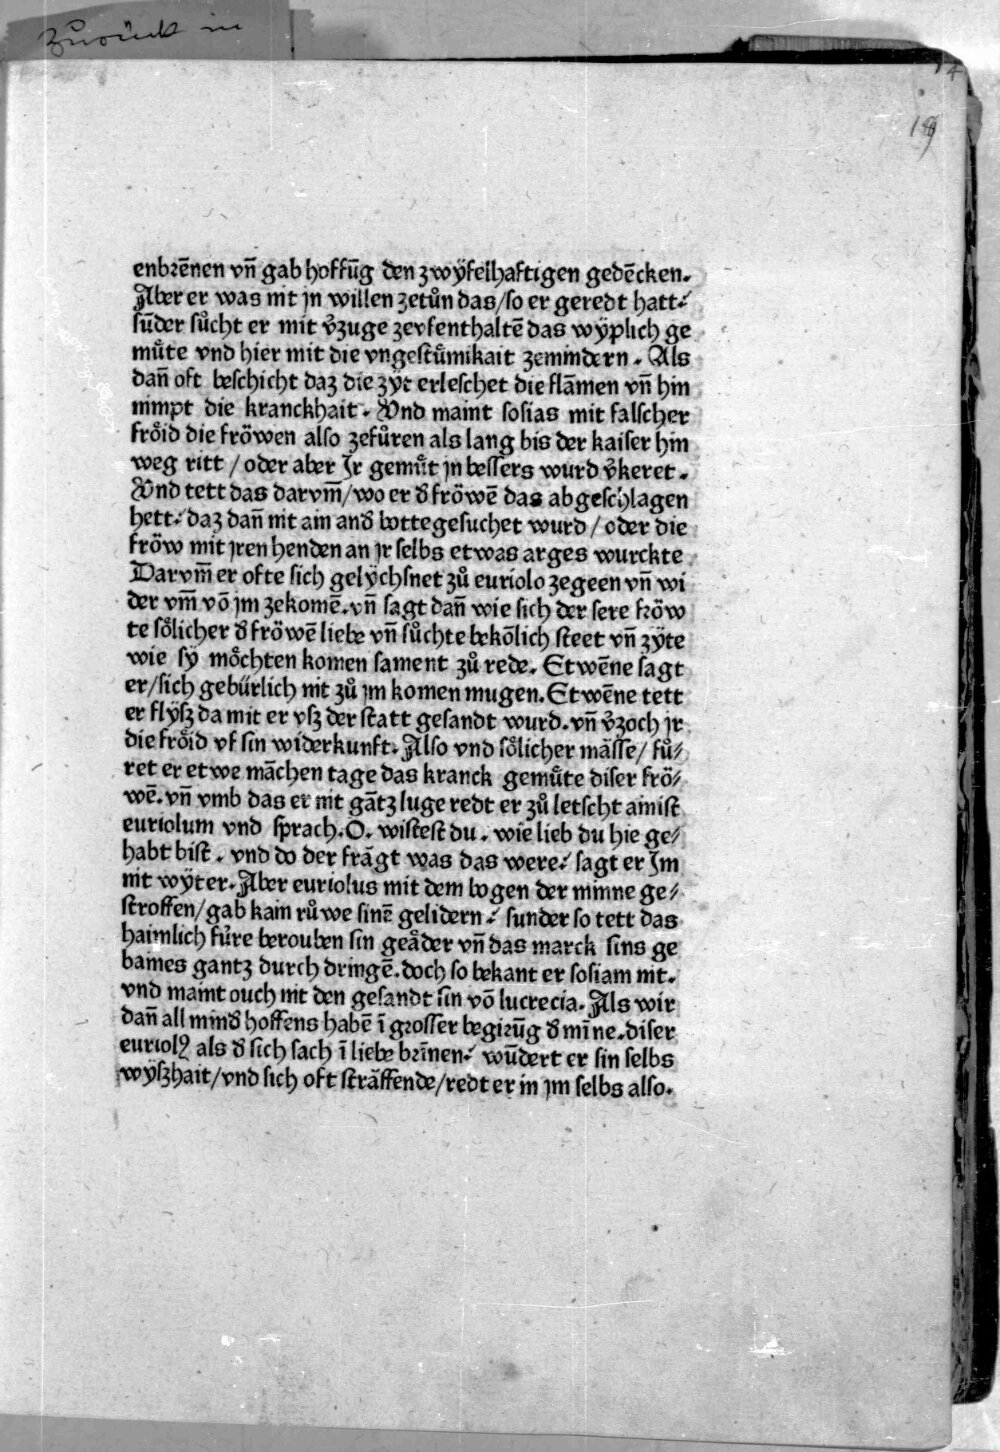 zurück in
4
enbrēnen vn̄ gab hoffūg den zwÿfelhaftigen gedēcken.
Aber er was nit jn willen zetůn das/so er geredt hatt⸝
sūder sůcht er mit v̉zuge zevfenthaltē das wÿplich ge
můte vnd hier mit die vngestůmikait zemindern. Als
dan̄ oft beschicht daz die zÿt erleschet die flāmen vn̄ hin
nimpt die kranckhait. Vnd maint sosias mit falscher
frőid die frőwen also zefůren als lang bis der kaiser hin
weg ritt /oder aber Jr gemůt jn bessers wurd v̉keret.
Vnd tett das darvm̄/wo er ð frőwē das abgeschlagen
hett⸝ daz dan̄ nit ain andð botte gesuchet wurd/oder die
frőw mit jren henden an jr selbs etwas arges wurckte
Darvm̄ er ofte sich gelÿchsnet zů euriolo zegeen vn̄ wi
der vm̄ vō jm zekomē.vn̄ sagt dan̄ wie sich der sere frőw
te sőlicher ð frőwē liebe vn̄ sůchte bekōlich steet vn̄ zÿte
wie sÿ mőchten komen sament zů rede. Etwēne sagt
er/sich gebürlich nit zů jm komen mugen.Etwēne tett
er flÿsz da mit er vsz der statt gesandt wurd.vn̄ v̉zoch jr
die frőid vf sin widerkunft. Also vnd sőlicher mässe/ fů⸗
ret er etwe māchen tage das kranck gemůte diser frő⸗
wē.vn̄ vmb das er nit gātz luge redt er zů letscht ainist
euriolum vnd sprach.O. wistest du. wie lieb du hie ge⸗
habt bist. vnd do der frăgt was das were⸝ sagt er Jm
nit wÿter. Aber euriolus mit dem bogen der minne ge⸗
stroffen/gab kain růwe sinē gelidern⸝ sunder so tett das
haimlich fűre berouben sin geåder vn̄ das marck sins ge
bames gantz durch dringē.doch so bekant er sosiam nit.
vnd maint ouch nit den gesandt sin vō lucrecia. Als wir
dan̄ all mindð hoffens habē ī grosser begirūg ð mīne.diser
euriolꝰ als ð sich sach ī liebe brīnen⸝ wūdert er sin selbs
wÿszhait/vnd sich oft sträffende/redt er in jm selbs also.